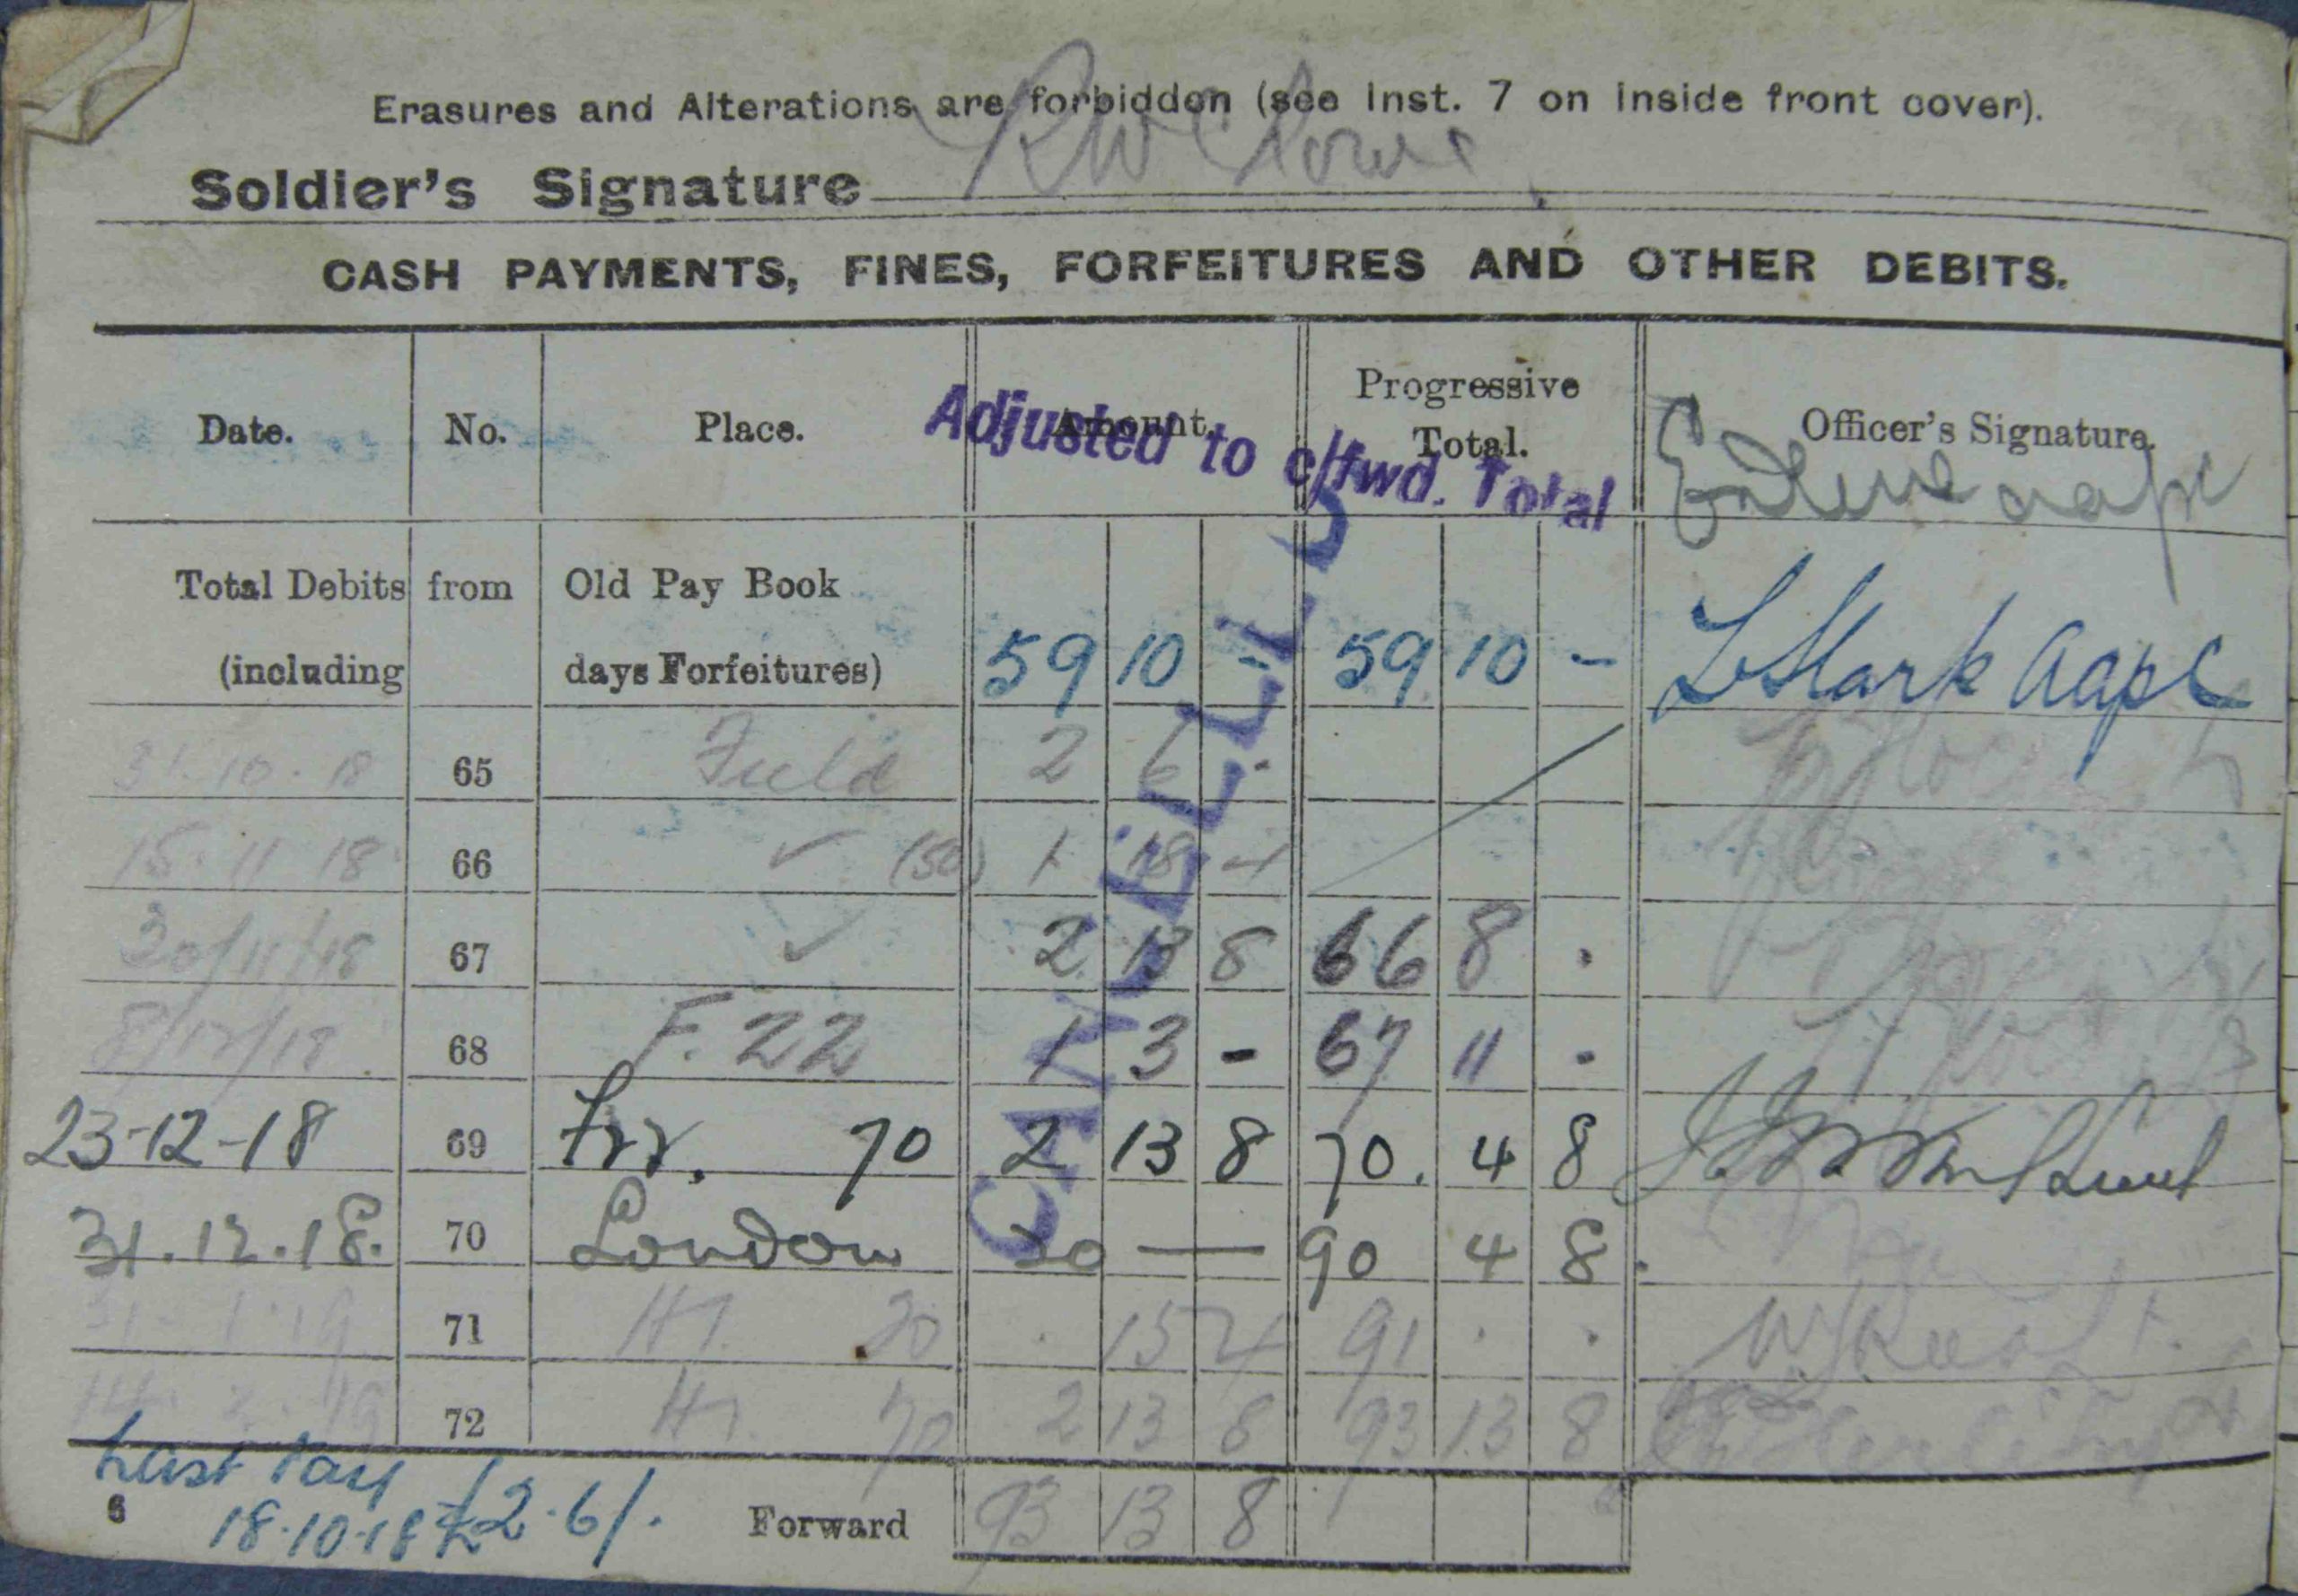 Erasures and Alterations are forbidden (see Inst. 7 on inside front cover).
Soldier's Signature
CASH PAYMENTS, FINES, FORFEITURES AND OTHER DEBITS.
Date. No. Place. Amount. Progressive Total. Officer's Signature.
Adjusted to c/fwd. Total
CANCELLED
Total Debits from Old Pay Book
(including days Forfeitures) 59 10 - 59 10 -
31.10.18 65 Field 2 6
15.11.18 66 ✓ (50) 1 18 4
30/11/18 67 ✓ 2 13 8 66 8 .
8/12/18 68 F. 22 1 3 - 67 11 .
23-12-18 69 70 2 13 8 70. 4 8
31.12.18. 70 London 20 — 90 4 8
31 1 19 71 20 . 15 4 91 . .
14 2 19 72 70 2 13 8 93 13 8
Last Pay
18.10.18 £2.6/.
6 Forward 93 13 8